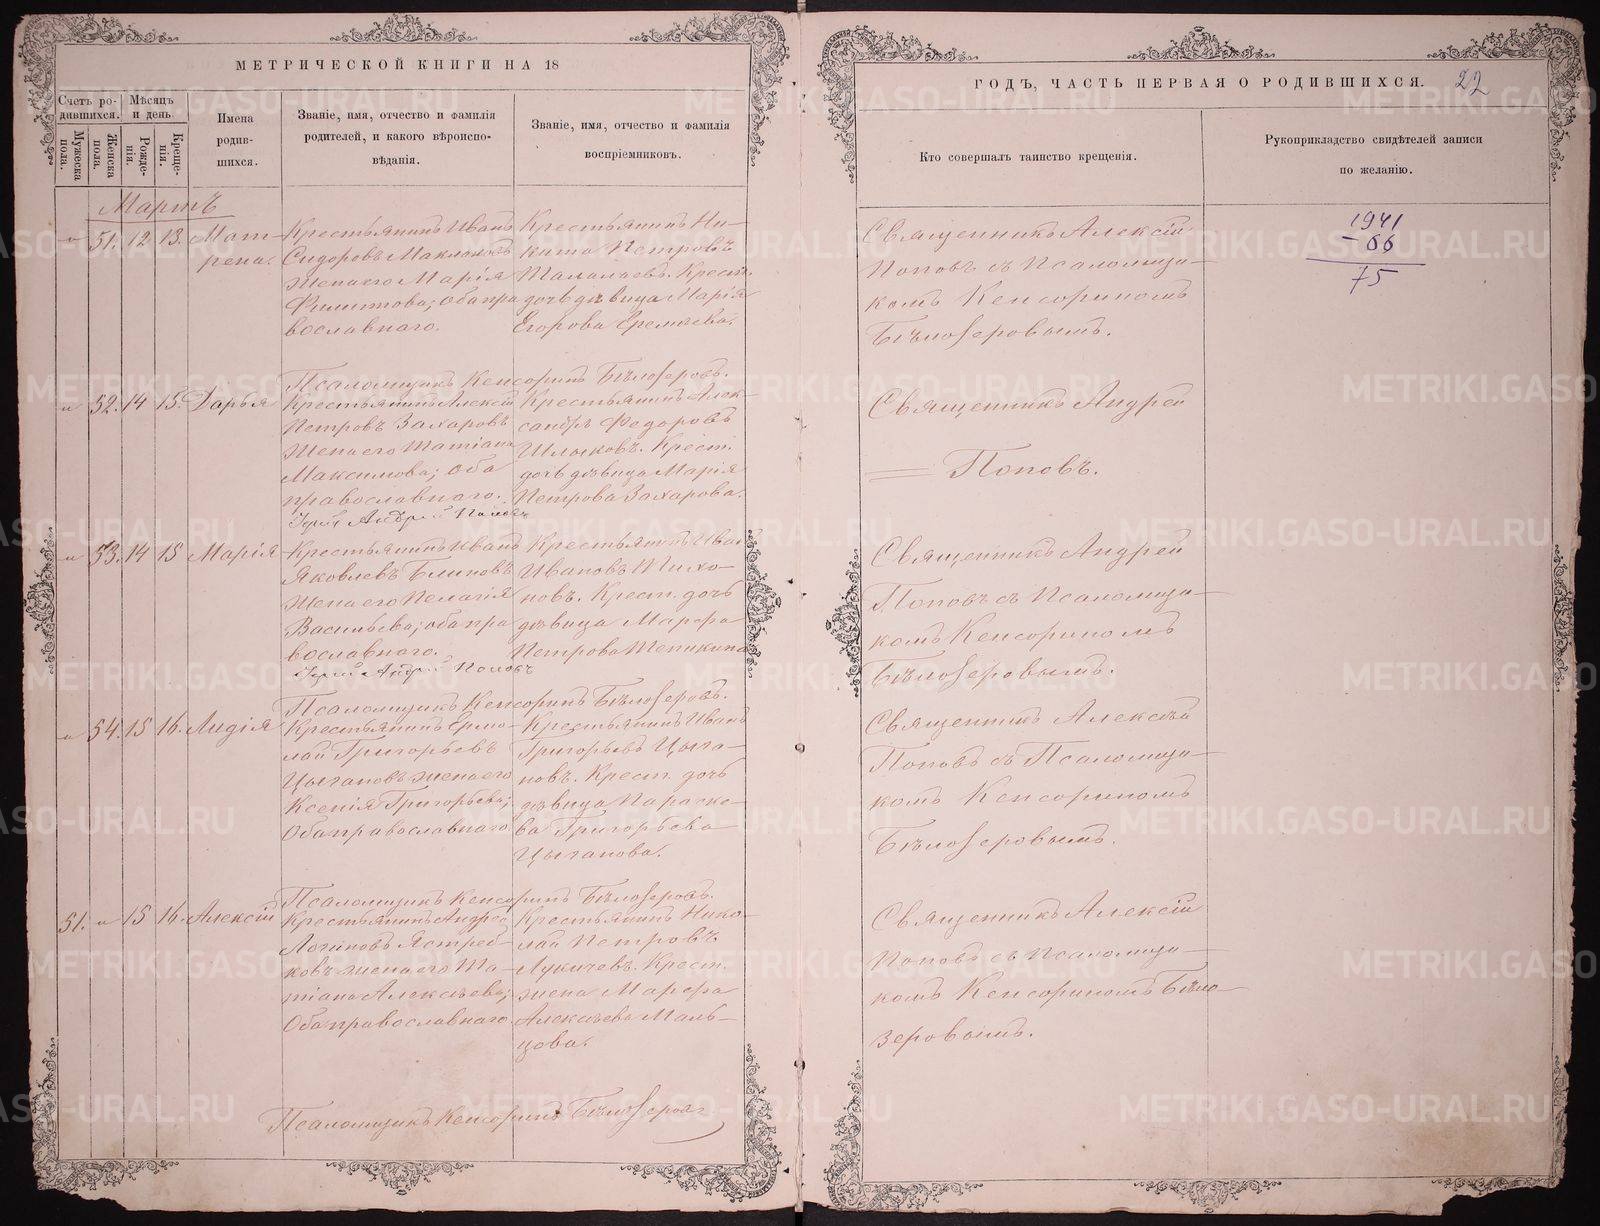 МЕТРИЧЕСКОЙ КНИГИ НА 18
Счетъ ро-
дившихся.
Мѣсяцъ
и день
Мужеска
пола.
Женска
пола.
Рожде-
нія.
Креще-
нія.
Имена
родив-
шихся.
Званіе, имя, отчество и фамилія
родителей, и какого вѣроиспо-
вѣданія.
Званіе, имя, отчество и фамилія
воспріемниковъ.
Мартъ
" 51. 12 13. Мат-
рена.
Крестьянинъ Иванъ
Сидоровъ Маклаковъ
жена его Марія
Филиппова; оба пра
вославнаго.
Крестьянинъ Ни-
кита Петровъ
Талалаевъ. Крест.
дочь дѣвица Марія
Егорова Еремѣева.
Псаломщикъ Кенсоринъ Бѣлозеровъ.
" 52. 14 15. Дарья
Крестьянинъ Алексій
Петровъ Захаровъ
жена его Татіана
Максимова; оба
православнаго.
Крестьянинъ Алек-
сандръ Федоровъ
Шлыковъ. Крест.
дочь дѣвица Марія
Петрова Захарова.
Іерей Андрей Поповъ
" 53. 14 15 Марія
Крестьянинъ Иванъ
Яковлевъ Блиновъ
жена его Пелагія
Васильева; оба пра
вославнаго.
Крестьянинъ Иван
Ивановъ Тихо-
новъ. Крест. дочь
дѣвица Марфа
Петрова Тепикина
Іерей Андрей Поповъ
Псаломщикъ Кенсоринъ Бѣлозеровъ.
" 54. 15 16. Лидія
Крестьянинъ Ермо-
лай Григорьевъ
Цыгановъ жена его
Ксенія Григорьева;
Оба православнаго
Крестьянинъ Иванъ
Григорьевъ Цыга-
новъ. Крест. дочь
дѣвица Параске-
ва Григорьева
Цыганова.
Псаломщикъ Кенсоринъ Бѣлозеровъ.
51. " 15 16. Алексій
Крестьянинъ Андрей
Логиновъ Ястреб-
ковъ жена его Та-
тіана Алексѣева;
Оба православнаго
Крестьянинъ Нико-
лай Петровъ
Лукичевъ. Крест.
жена Марфа
Алексѣева Маль-
цова.
Псаломщикъ Кенсоринъ Бѣлозеровъ
ГОДЪ, ЧАСТЬ ПЕРВАЯ О РОДИВШИХСЯ. 22
Кто совершалъ таинство крещенія.
Рукоприкладство свидѣтелей записи
по желанію.
Священникъ Алексій
Поповъ съ Псаломщи-
комъ Кенсориномъ
Бѣлозеровымъ.
1941
-66
75
Священникъ Андрей
Поповъ.
Священникъ Андрей
Поповъ съ Псаломщи-
комъ Кенсориномъ
Бѣлозеровымъ.
Священникъ Алексѣй
Поповъ съ Псаломщи-
комъ Кенсориномъ
Бѣлозеровымъ.
Священникъ Алексій
Поповъ съ Псаломщи-
комъ Кенсориномъ Бѣло-
зеровымъ.
METRIKI.GASO-URAL.RU